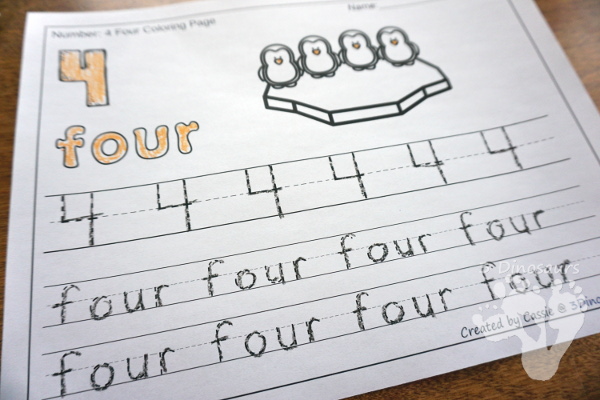 Number: 4 Four Coloring Page
Name
4
four
4 4 4 4 4 4
four four four four
four four four four
Dinosaurs
Created by Cassie @ 3Dino